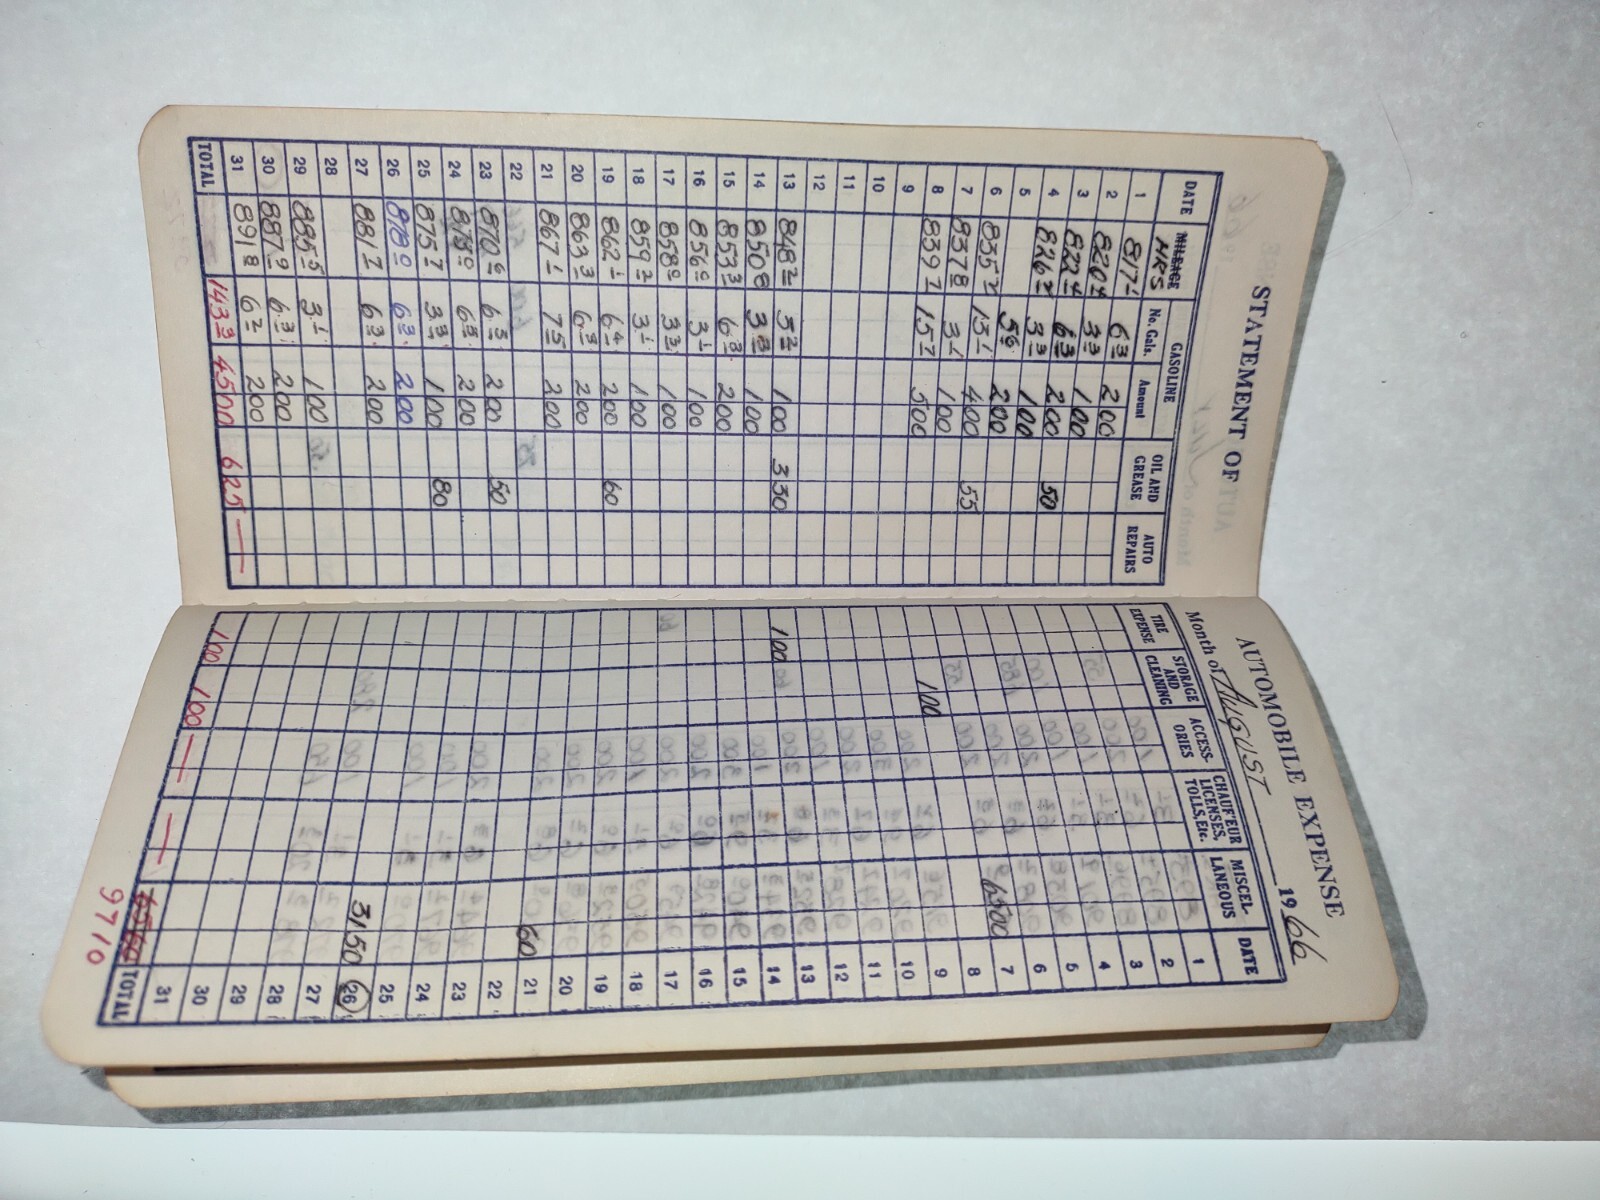 STATEMENT OF
DATE MILEAGE HRS GASOLINE No. Gals. Amount OIL AND GREASE AUTO REPAIRS
1 817 1 6 3 200
2 820 4 3 3 100
3 822 4 6 3 200
4 826 2 3 3 100 50
5 5 6 200
6 835 2 13 1 400
7 837 8 3 1 100 55
8 839 7 15 7 500
9
10
11
12
13 848 2 3 2 100 330
14 850 8 3 3 100
15 853 3 6 3 200
16 856 0 3 1 100
17 858 0 3 3 100
18 859 2 3 1 100
19 862 1 6 4 200 60
20 863 3 6 3 200
21 867 1 7 5 200
22
23 870 6 6 5 200 50
24 873 0 6 5 200
25 875 7 3 3 100 80
26 878 0 6 3 200
27 881 7 6 3 200
28
29 885 5 3 1 100
30 887 9 6 3 200
31 891 8 6 2 200
TOTAL 143 3 4500 625 —
AUTOMOBILE EXPENSE
Month of AUGUST 1966
TIRE EXPENSE STORAGE AND CLEANING ACCESSORIES CHAUF'EUR LICENSES, TOLLS, Etc. MISCELLANEOUS DATE
1
2
3
4
5
6
6500 7
8
100 9
10
11
12
13
100 14
15
16
17
18
19
20
60 21
22
23
24
25
3150 26
27
28
29
30
31
100 100 — — TOTAL
9710